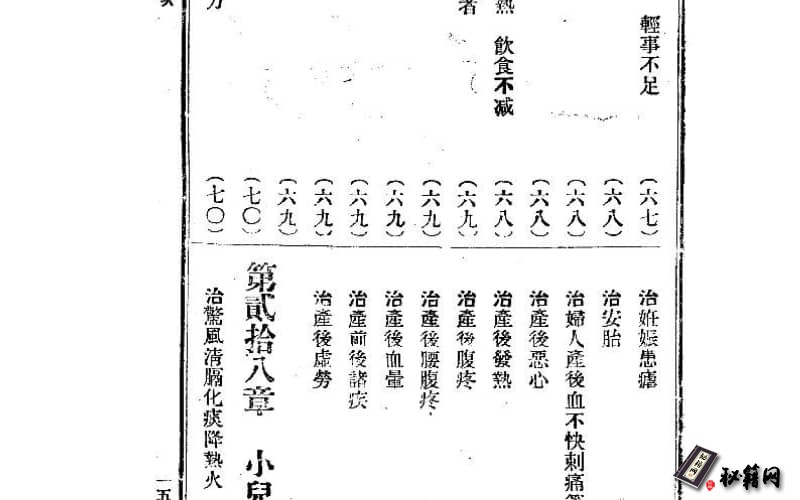 輕事不足
熱 飲食不减
者
(六七)
(六八)
(六八)
(六八)
(六八)
(六九)
(六九)
(六九)
(六九)
(六九)
(六九)
(七〇)
(七〇)
治妊娠患瘧
治安胎
治婦人產後血不快刺痛
治產後惡心
治產後發熱
治產後腹疼
治產後腰腹疼
治產後血暈
治產前後諸疾
治產後虛勞
第貳拾八章 小兒
治驚風清膈化痰降熱火
一五
秘籍网